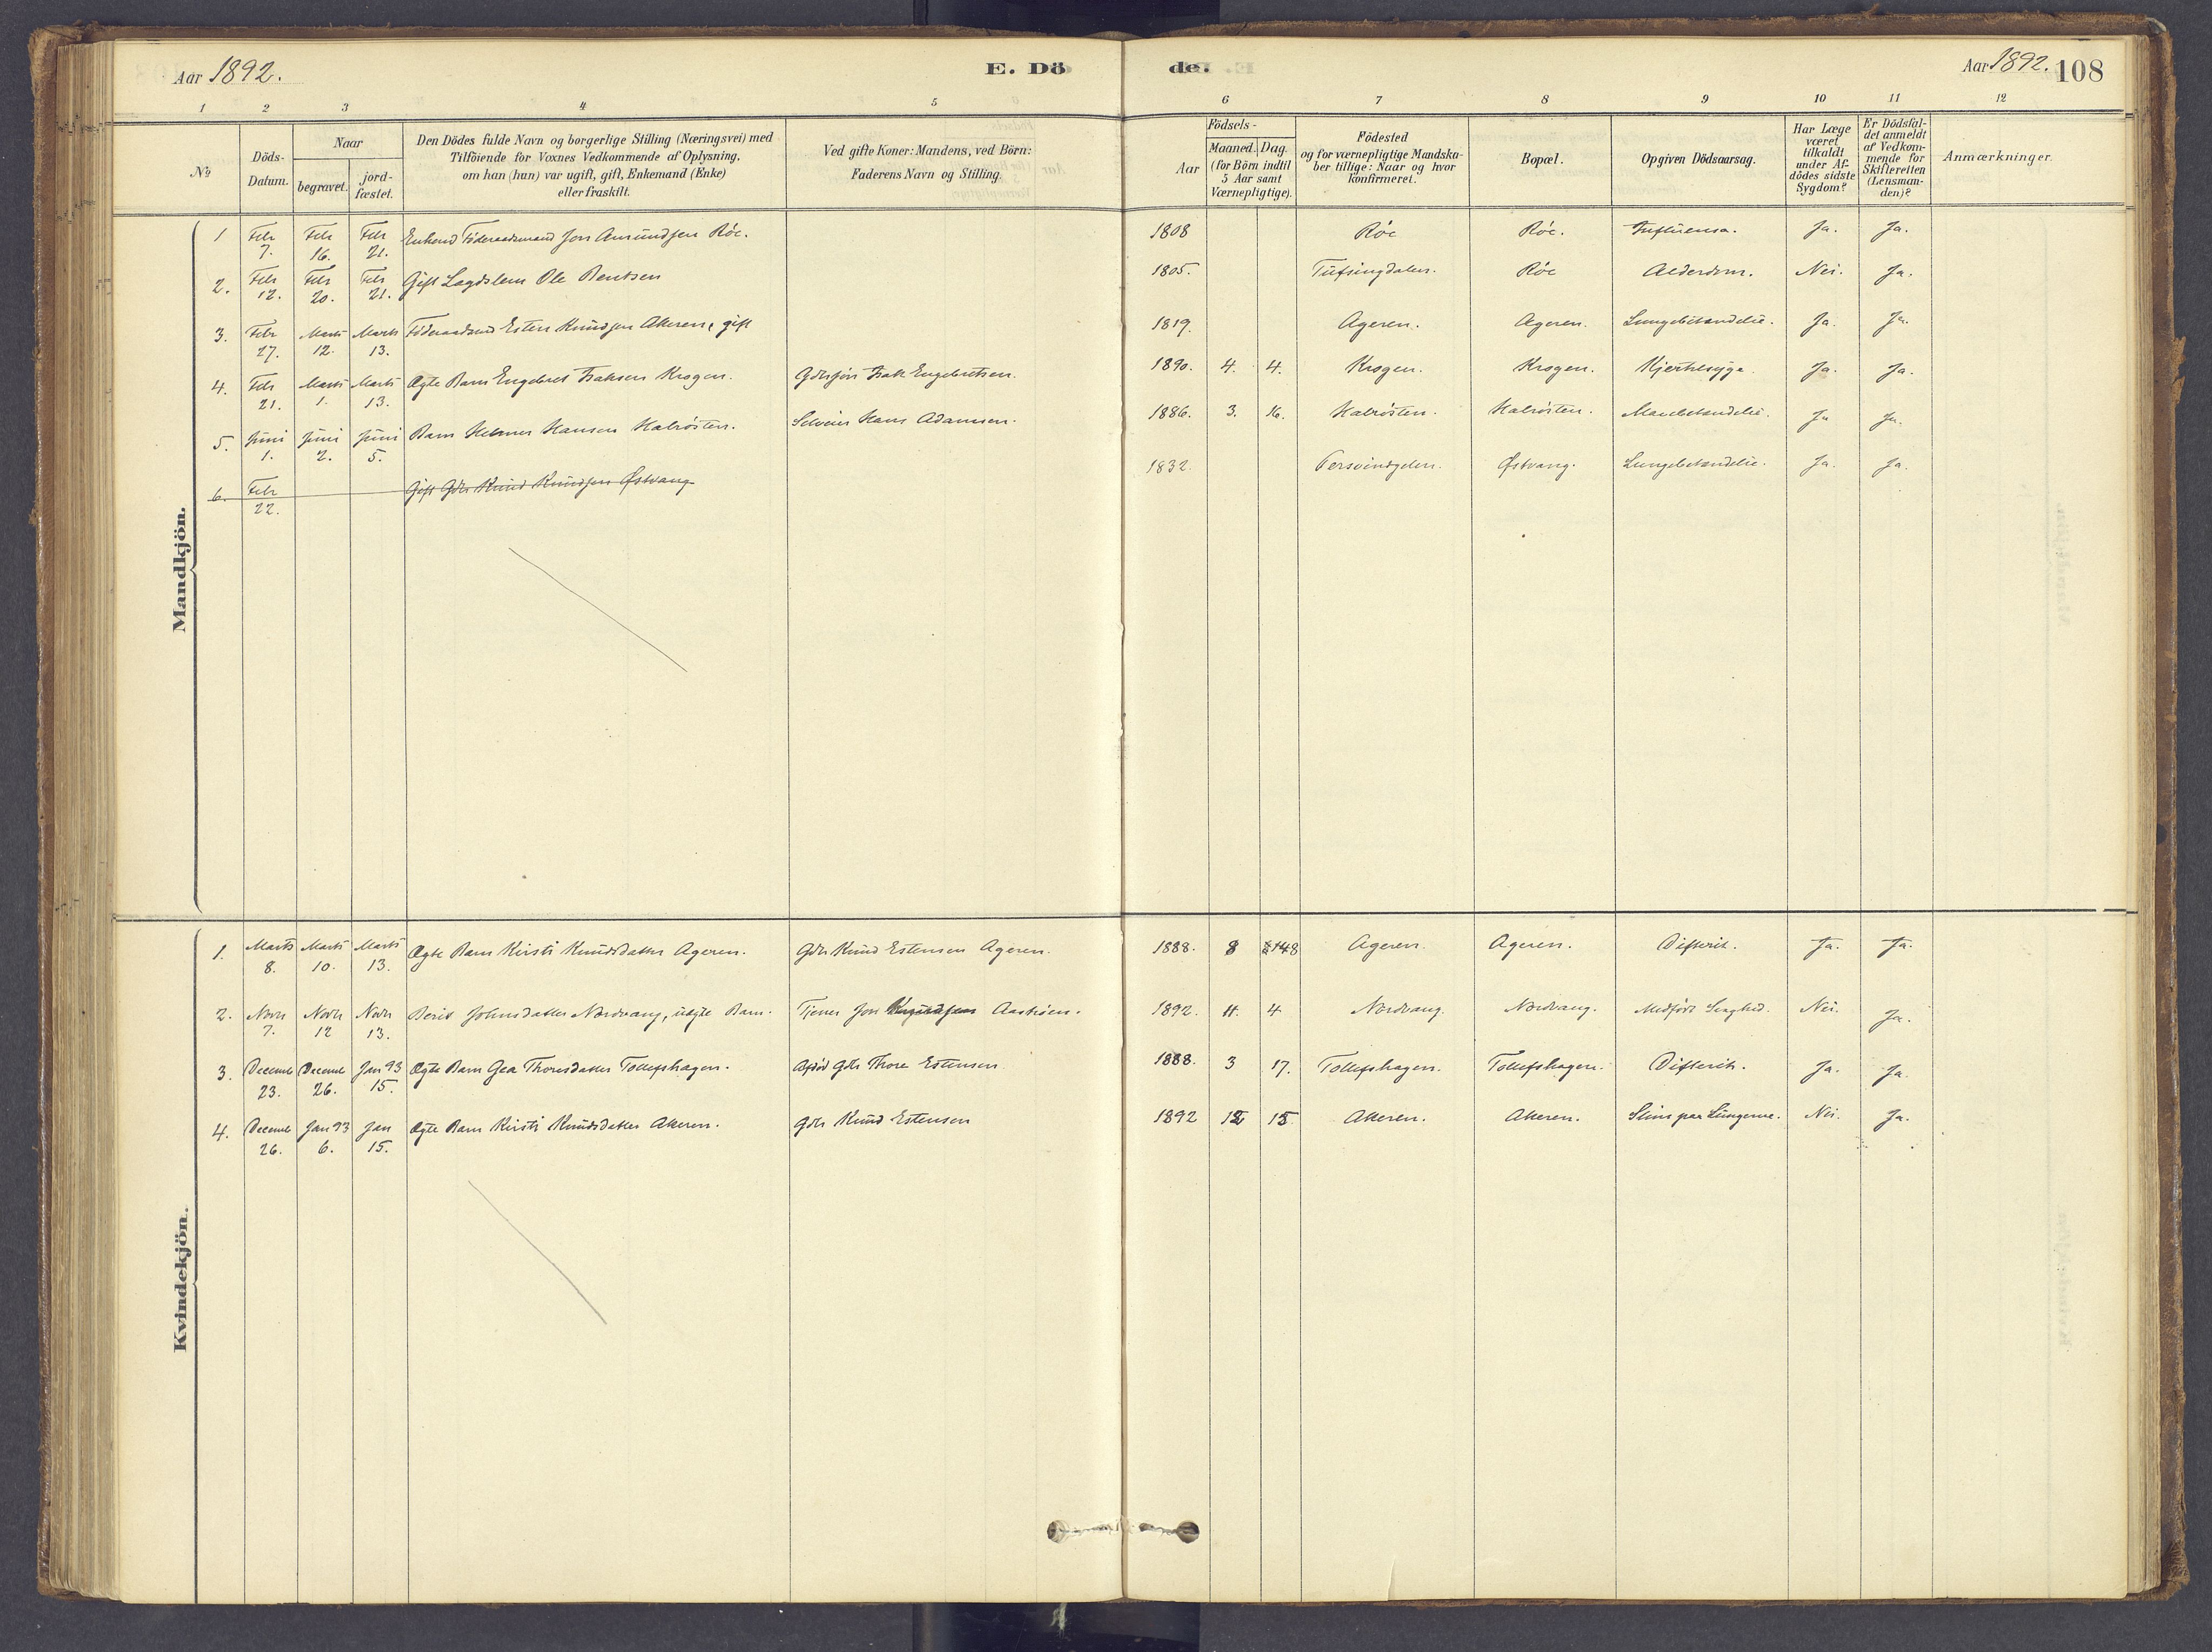 Aar 1892.
E. Dö de.
Aar 1892. 108
1 2 3 4 5 6 7 8 9 10 11 12
No
Döds-Datum.
Naar
begravet.
jord-fæstet.
Den Dödes fulde Navn og borgerlige Stilling (Næringsvei) med
Tilföiende for Voxnes Vedkommende af Oplysning,
om han (hun) var ugift, gift, Enkemand (Enke)
eller fraskilt.
Ved gifte Koner: Mandens, ved Börn:
Faderens Navn og Stilling.
Födsels-
Aar
Maaned. Dag.
(for Börn indtil
5 Aar samt
Værnepligtige).
Födested
og for værnepligtige Mandska-
ber tillige: Naar og hvor
konfirmeret.
Bopæl.
Opgiven Dödsaarsag.
Har Læge
været
tilkaldt
under Af-
dödes sidste
Sygdom?
Er Dödsfal-
det anmeldt
af Vedkom-
mende for
Skifteretten
(Lensman-
den)?
Anmærkninger.
Mandkjön.
1 Febr 7. Febr 16. Febr 21. Föderaadsmand Jon Amundsen Röe. 1808 Röe Röe. Influensa. Ja. Ja.
2. Febr 12. Febr 20. Febr 21. Gift Lægdslem Ole Bentsen 1805. Tufsingdalen. Röe Alderdom. Nei. Ja.
3. Febr 27. Marts 12. Marts 13. Esten Knudsen Akeren, gift 1819. Ageren. Ageren. Lungebetændelse. Ja. Ja.
4. Febr 21. Marts 1. Marts 13. Ægte Barn Engebret Isaksen Krogen. Isak Engebretsen. 1890. 4. 4. Krogen. Krogen. Hjertesyge. Ja. Ja.
5. Juni 1. Juni 2. Juni 5. Barn Helmer Hansen Halrösten. Selveier Hans Adamsen. 1886. 3. 16. Halrösten. Halrösten. Ja Ja.
6. Febr 22. Gift Gdr Knud Knudsen Østvang 1832. Østvang. Lungebetændelse. Ja. Ja.
Kvindekjön.
1. Marts 8. Marts 10. Marts 13. Ægte Barn Kirsti Knudsdatter Ageren. Gdr Knud Estensen Ageren. 1888. 8 Ageren. Ageren. Difterit. Ja. Ja.
2. Novr 7. Novr 12 Novr 13. Berit Johnsdatter Nordvang, uægte Barn. Tjener Jon Aaströen. 1892. 11. 4 Nordvang. Nordvang. Medfödt Svaghed. Nei. Ja.
3. Decemb 23. Decemb 26. Jan 93 15. Ægte Barn Gea Thoresdatter Tollefshagen. Afdöd Gdr Thore Estensen 1888. 3 17. Tollefshagen. Tollefshagen. Difterit. Ja. Ja.
4. Decemb 26. Jan 93 6. Jan 15. Ægte Barn Kirsti Knudsdatter Akeren. Gdr Knud Estensen 1892 12 15 Akeren. Akeren. Slim paa Lungerne. Nei. Ja.